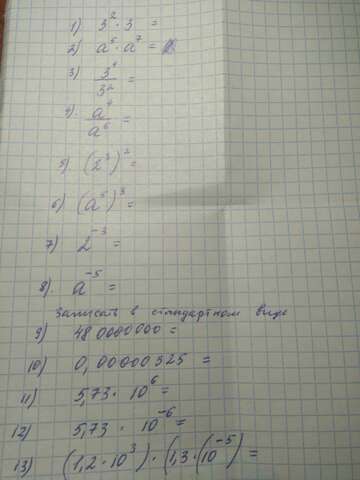 1) 3² · 3 =
2) a⁵ · a⁷ =
3) 3⁴/3² =
4). a⁹/a⁶ =
5) (2³)² =
6) (a⁵)³ =
7) 2⁻³ =
8). a⁻⁵ =
Записать в стандартном виде
9) 480000000 =
10) 0,00000325 =
11) 5,73 · 10⁶ =
12) 5,73 · 10⁻⁶ =
13) (1,2 · 10³) · (1,3 · (10⁻⁵) =